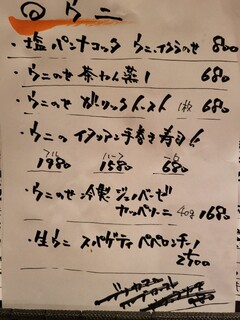 ◎ウニ
・塩パンナコッタ ウニ、イクラのせ 800
・ウニのせ 茶わん蒸し 680
・ウニのせ ガーリックトースト 1枚 680
・ウニの イタリアン手巻き寿司
1980 1580 680
・ウニのせ 冷製 ジェノベーゼ
カッペリーニ 40g 1680
・生ウニ スパゲティ ペペロンチーノ
2800